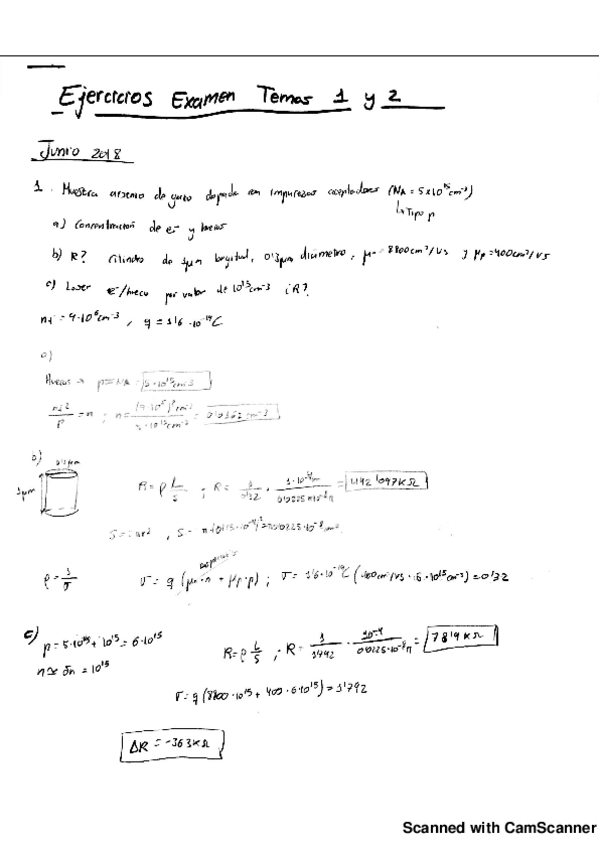 Ejercicios Examen Temas 1 y 2
Junio 2018
1. Muestra arseniuro de galio dopada con impurezas aceptadoras (NA = 5x10^15 cm^-3)
↳ Tipo p
a) Concentración de e- y huecos
b) R? Cilindro de 1μm longitud, 0'3μm diámetro, μn = 8800cm²/Vs y μp = 400cm²/VS
c) Laser e-/hueco por valor de 10^15 cm^-3 ¿R?
ni = 9·10^6 cm^-3, q = 1'6·10^-19 C
a)
Huecos → p≈NA = 5·10^15 cm^-3
ni²/p = n ; n =
b) 0'3μm
1μm
R = ρ L/S ; R =
S = πr², S =
ρ = 1/σ σ = q (μn·n + μp·p) ; σ = 1'6·10^-19 C (400cm²/VS · 5·10^15 cm^-3) = 0'32
c) p = 5·10^15 + 10^15 = 6·10^15
n ≃ δn = 10^15
R = ρ L/S ; R = 1/1'792 · 10^-4/0'0225·10^-8π = 789 KΩ
σ = q (8800·10^15 + 400·6·10^15) = 1'792
ΔR = -363KΩ
Scanned with CamScanner